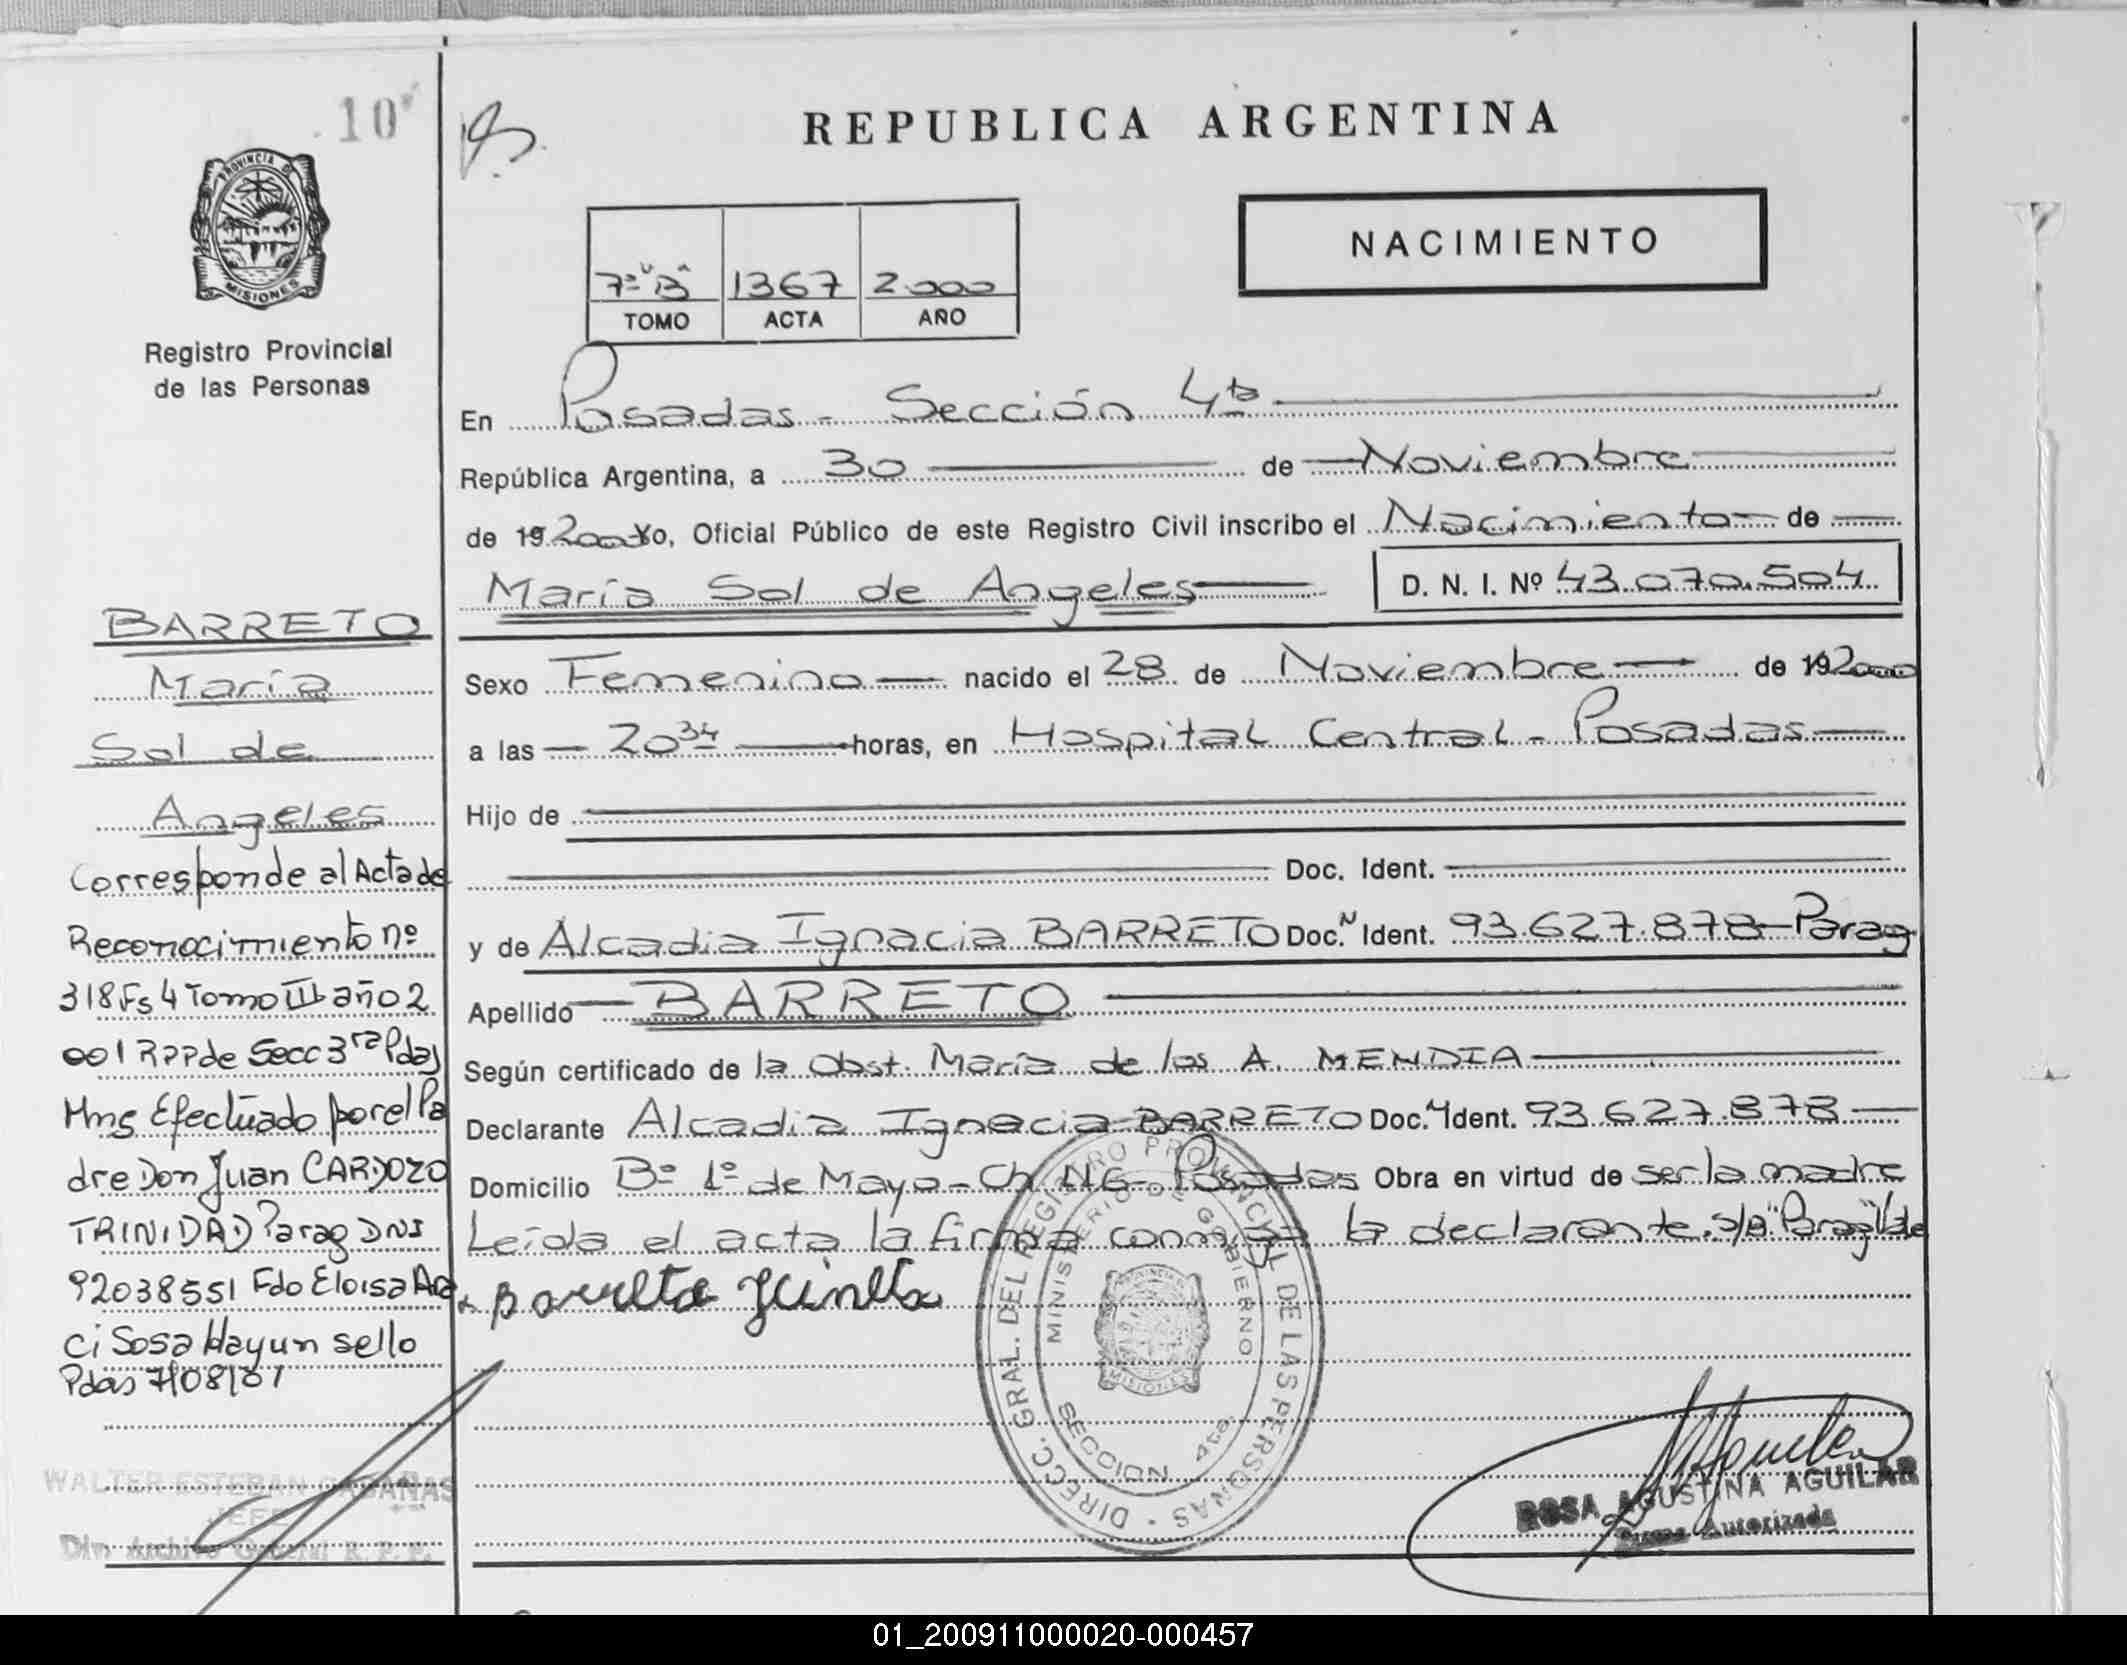 10
REPUBLICA ARGENTINA
NACIMIENTO
7º "B" 1367 2.000
TOMO ACTA AÑO
PROVINCIA DE
MISIONES
Registro Provincial
de las Personas
En Posadas - Sección 4ta
República Argentina, a 30 de Noviembre
de 19 2000 Yo, Oficial Público de este Registro Civil inscribo el Nacimiento de
María Sol de Angeles D. N. I. Nº 43.070.504
Sexo Femenino nacido el 28 de Noviembre de 19 2000
a las 20 34 horas, en Hospital Central - Posadas
Hijo de
Doc. Ident.
y de Alcadia Ignacia BARRETO Doc. N Ident. 93.627.878 - Parag
Apellido BARRETO
Según certificado de la Obst. María de los A. MENDIA
Declarante Alcadia Ignacia BARRETO Doc. Ident. 93.627.878
Domicilio Bº 1º de Mayo - Ch. Posadas Obra en virtud de ser la madre
Leída el acta la firma conmigo la declarante. s/b "Parag" Vale
BARRETO
María
Sol de
Angeles
Corresponde al Acta de
Reconocimiento nº
318 Fs 4 Tomo III año 2
001 RPP de Secc 3ra Pdas
Mns Efectuado por el Pa
dre Don Juan CARDOZO
TRINIDAD Parag DNI
92038551 Fdo Eloisa Ara
ci Sosa Hay un sello
Pdas 7/08/01
WALTER ESTEBAN CABAÑAS
JEFE
Div. Archivo General R. P. P.
DIRECC. GRAL. DEL REGISTRO PROVINCIAL DE LAS PERSONAS
MINISTERIO DE GOBIERNO
MISIONES
SECCION 4ta
ROSA AGUSTINA AGUILAR
Firma Autorizada
01_200911000020-000457